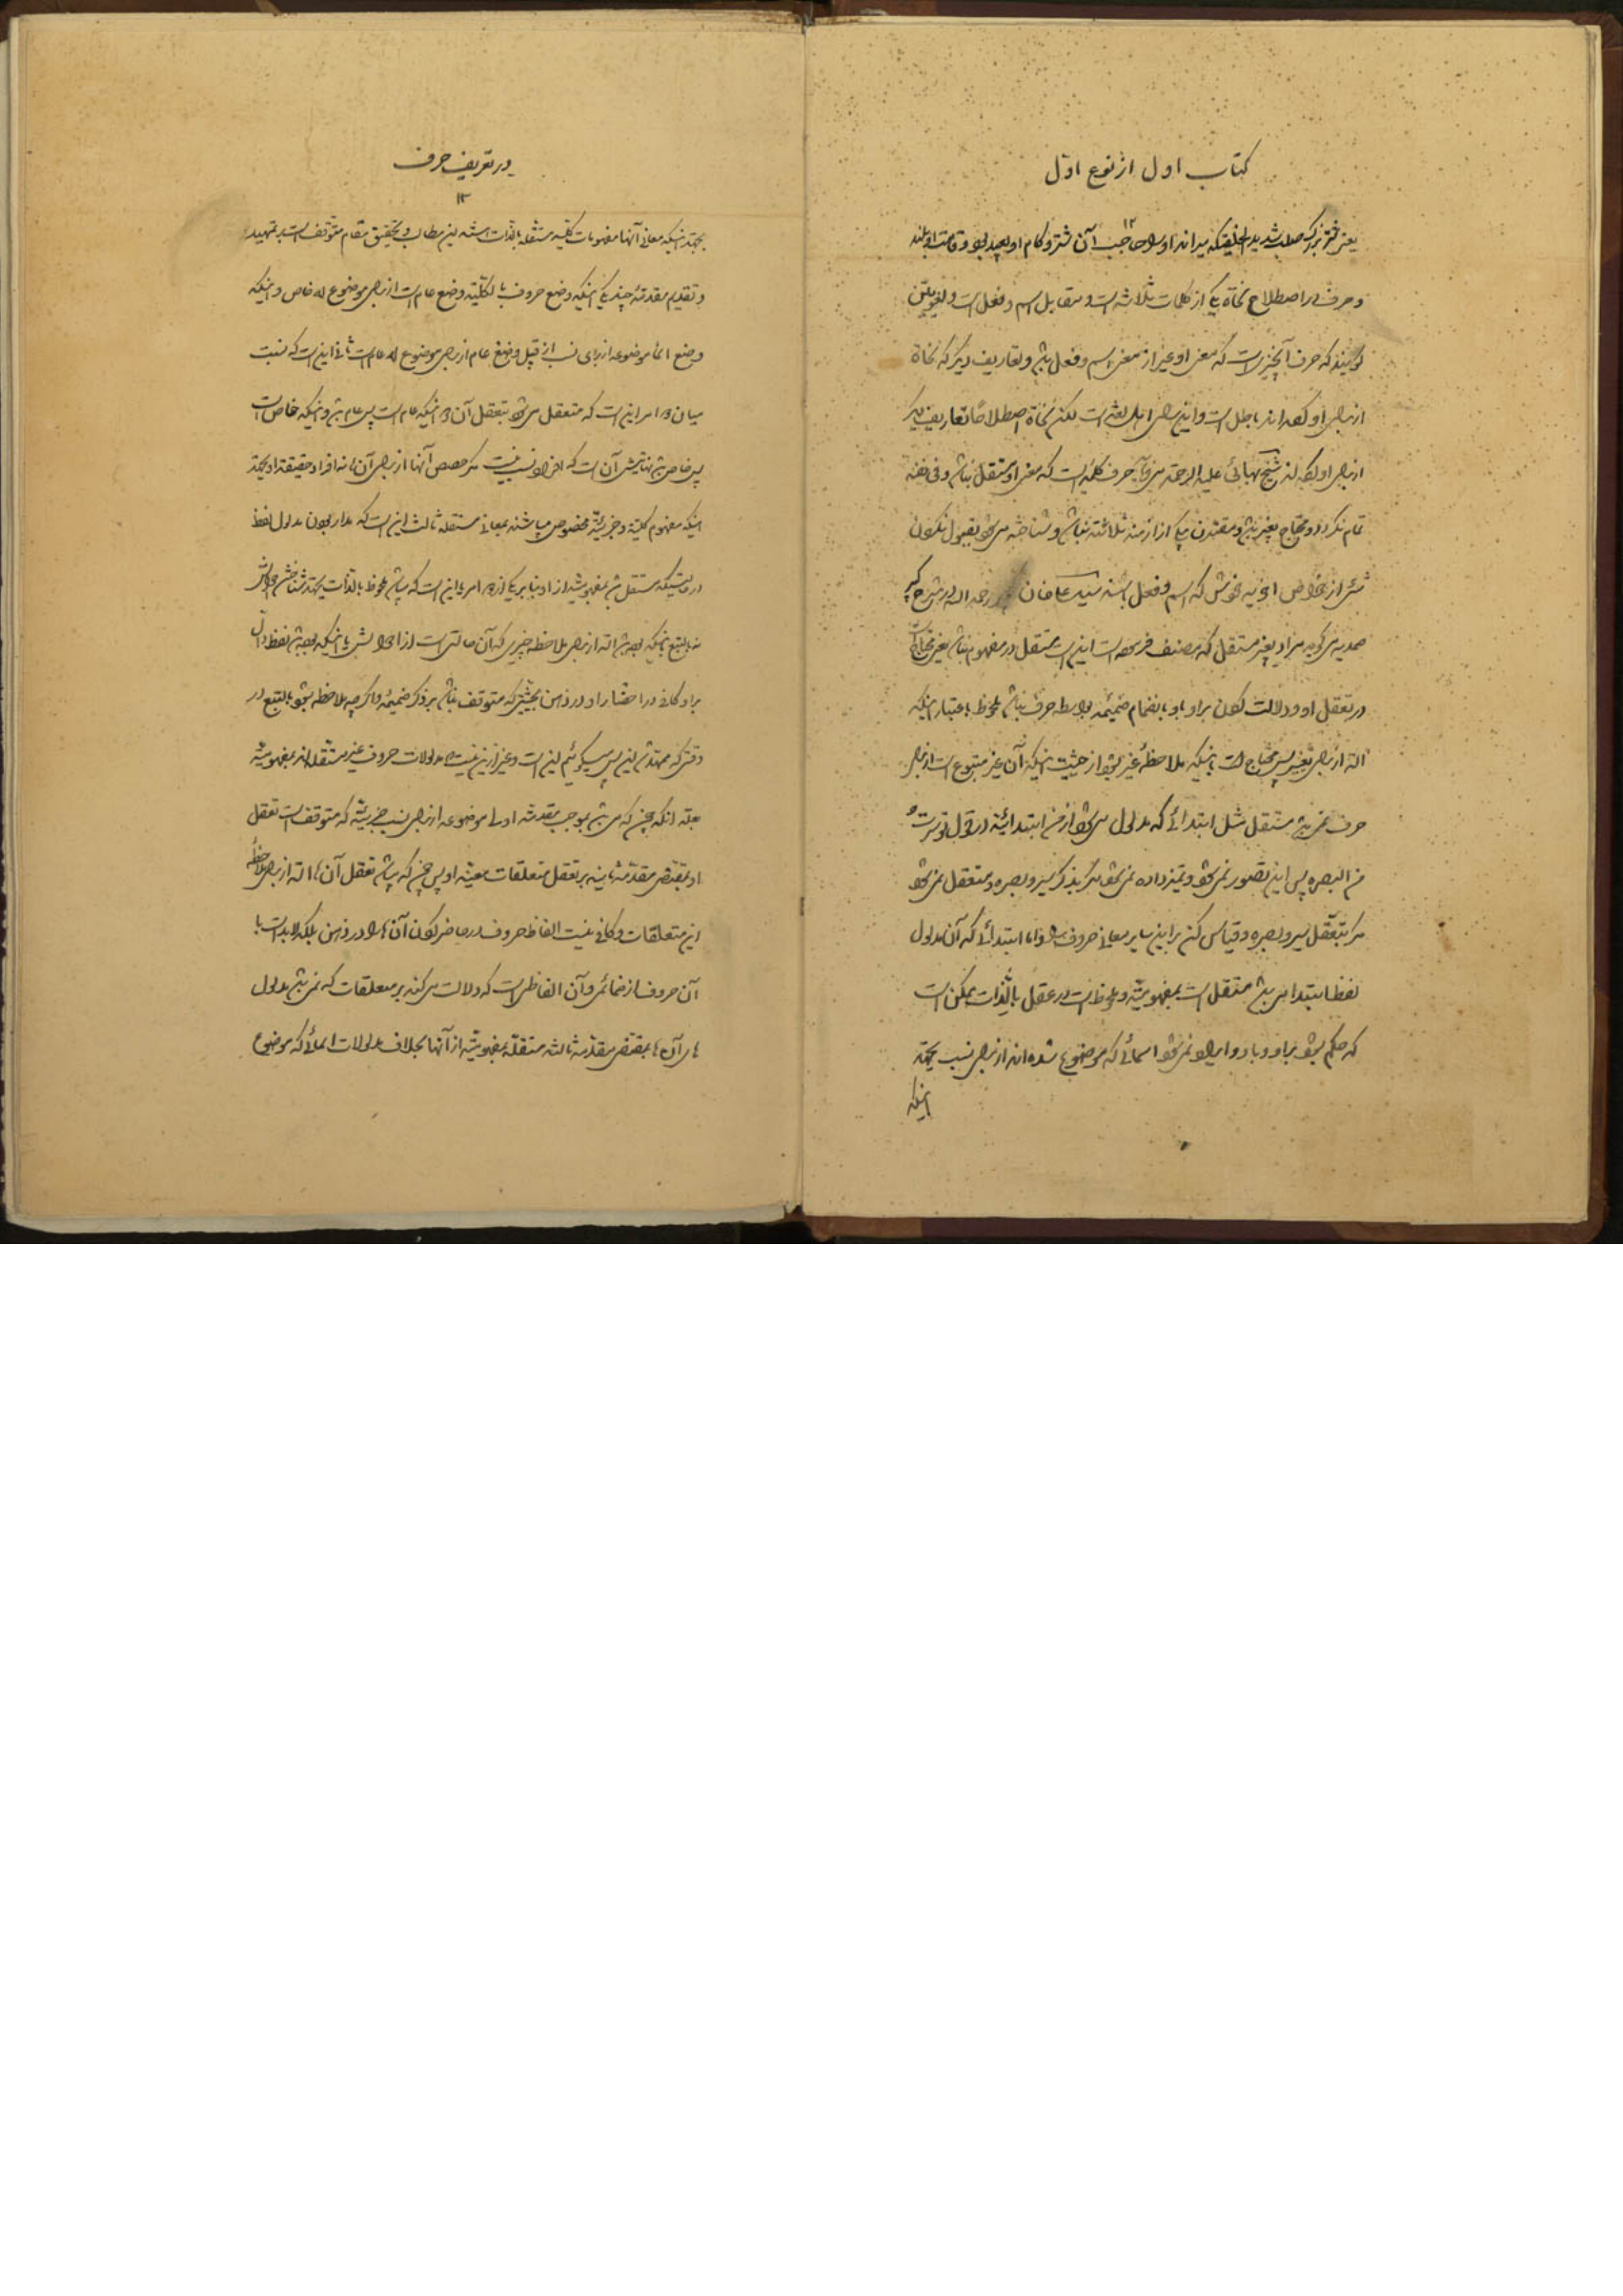 کتاب اول از نوع اول
۱۲
یعنی شتر بزرگ صلب شدید الخلیقه که میراند او را صاحب آن شتر و کام او بعید بود و قامت او بلند
و حرف در اصطلاح نحاة یکی از کلمات ثلاثه است و مقابل اسم و فعل است و لغویین
گویند که حرف آنچیزی است که معنی او غیر از معنی اسم و فعل باشد و تعاریف دیگر که نحاة
از برای او کرده‌اند باطل است و این برای اهل لغة است لکن نحاة اصطلاحا تعاریف دیگر
از برای او کرده‌اند شیخ بهائی علیه الرحمة می‌فرماید حرف کلمه‌ایست که معنی او مستقل نباشد و فی نفسه
تمام نگردد و محتاج بغیر باشد و مقترن بیکی از ازمنه ثلاثة نباشد و شناخته می‌شود بقبول نکردن
شئ از خواص اخویه خویش که اسم و فعل باشند سید علیخان رحمه الله در شرح کبیر
صمدیه می‌گوید مراد بغیر مستقل که مصنف فرموده است اینست که مستقل در مفهوم نباشد یعنی محتاج است
در تعقل او و دلالت کردن بر او باو بانضمام ضمیمه بواسطه حرف نباشد ملحوظ باعتبار اینکه
آلة از برای تغیر پس محتاج است باینکه ملاحظهٔ غیر بشود از حیثیت اینکه آن غیر متبوع است از برای
حرف نمی‌باشد مستقل مثل ابتدائی که مدلول می‌شود از من ابتدائیة در قول تو سرت
من البصره پس این تصور نمی‌شود و تمیز داده نمی‌شود مگر بذکر سیر و بصره و متعقل نمی‌شود
مگر بتعقل سیر و بصره و قیاس کن بر این سایر معانی حروف را و اما ابتدائی که آن مدلول
لفظ ابتدا می‌باشد مستقل است بمفهومیته و ملحوظ است در عقل بالذات ممکن است
که حکم بشود بر او و باو و ایراد نمی‌شود اسمائی که موضوع شده‌اند از برای نسب بجهة
اینکه
در تعریف حرف
۱۳
بجهة اینکه معانی آنها مفهومات کلیه مستقله بالذات هستند این مطالب و تحقیق مقام متوقف است بر تمهید
و تقدیم مقدمهٔ چند یکی اینکه وضع حروف بالکلیة وضع عام است از برای موضوع له خاص و اینکه
وضع اسماء موضوعه از برای نسب از قبیل وضع عام از برای موضوع له عام است ثانی اینست که نسبت
میان دو امر اینست که متعقل می‌شود بتعقل آن دو اینکه عام است پس عام باشد و اینکه خاص است
پس خاص باشد نهایتش آن است که افراد نسب نیست مگر حصص آنها از برای آن‌ها نه افراد حقیقة او بجهة
اینکه مفهوم کلیة و جزئیة مخصوص می‌باشند بمعانی مستقله ثالث این است که مدار بودن مدلول لفظ
در حالتیکه مستقل باشد بمفهومیتش از او بنا بر یکی از دو امر یا این است که می‌باشد ملحوظ بالذات بجهة شناختن احوالش
نه بالتبع باینکه بوده باشد آلة از برای ملاحظه چیزی که آن حالتی است از احوالش یا اینکه بوده باشد لفظ دال
بر او کافی در احضار او در ذهن بحیثیتی که متوقف نباشد بر ذکر ضمیمهٔ و اگر چه ملاحظه بشود بالتبع در
وقتی که ممهد شد این پس میگوئیم این است و غیر از این نیست مدلولات حروف غیر مستقله‌اند بمفهومیته
بعلة آنکه چنین که می‌باشد بموجب مقدمه اولی موضوعه از برای نسب جزئیة که متوقف است تعقل
او بمقتضی مقدمه ثانیه بر تعقل متعلقات معینه او پس چنین که می‌باشد تعقل آن‌ها آلة از برای ملاحظهٔ
این متعلقات و کافی نیست الفاظ حروف در حاضر کردن آن‌ها را در ذهن بلکه لا بد است با
آن حروف از ضمائمی و آن الفاظی است که دلالت می‌کند بر متعلقات که نمی‌باشد مدلول
های آن‌ها بمقتضی مقدمه ثالثه مستقلة بمفهومیته از آنها بخلاف مدلولات اسمائی که موضوع